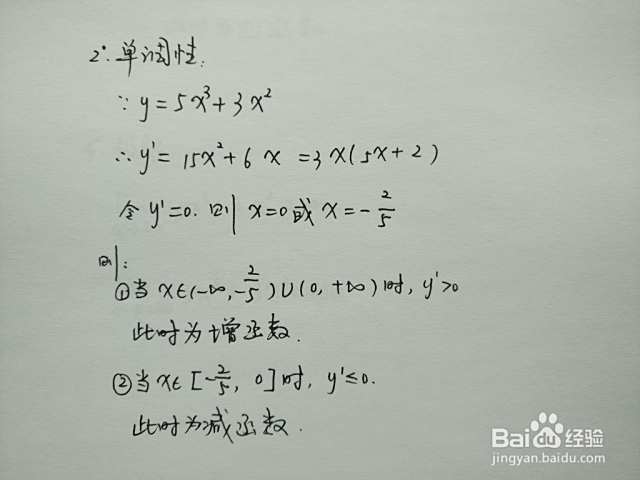 2°. 单调性.
∵ y = 5x³ + 3x²
∴ y' = 15x² + 6x = 3x(5x+2)
令 y'=0. 则 x=0 或 x=-2/5
则:
①当 x∈(-∞, -2/5)∪(0, +∞)时, y'>0
此时为增函数.
②当 x∈[-2/5, 0]时, y'≤0.
此时为减函数.
Baidu经验
jingyan.baidu.com